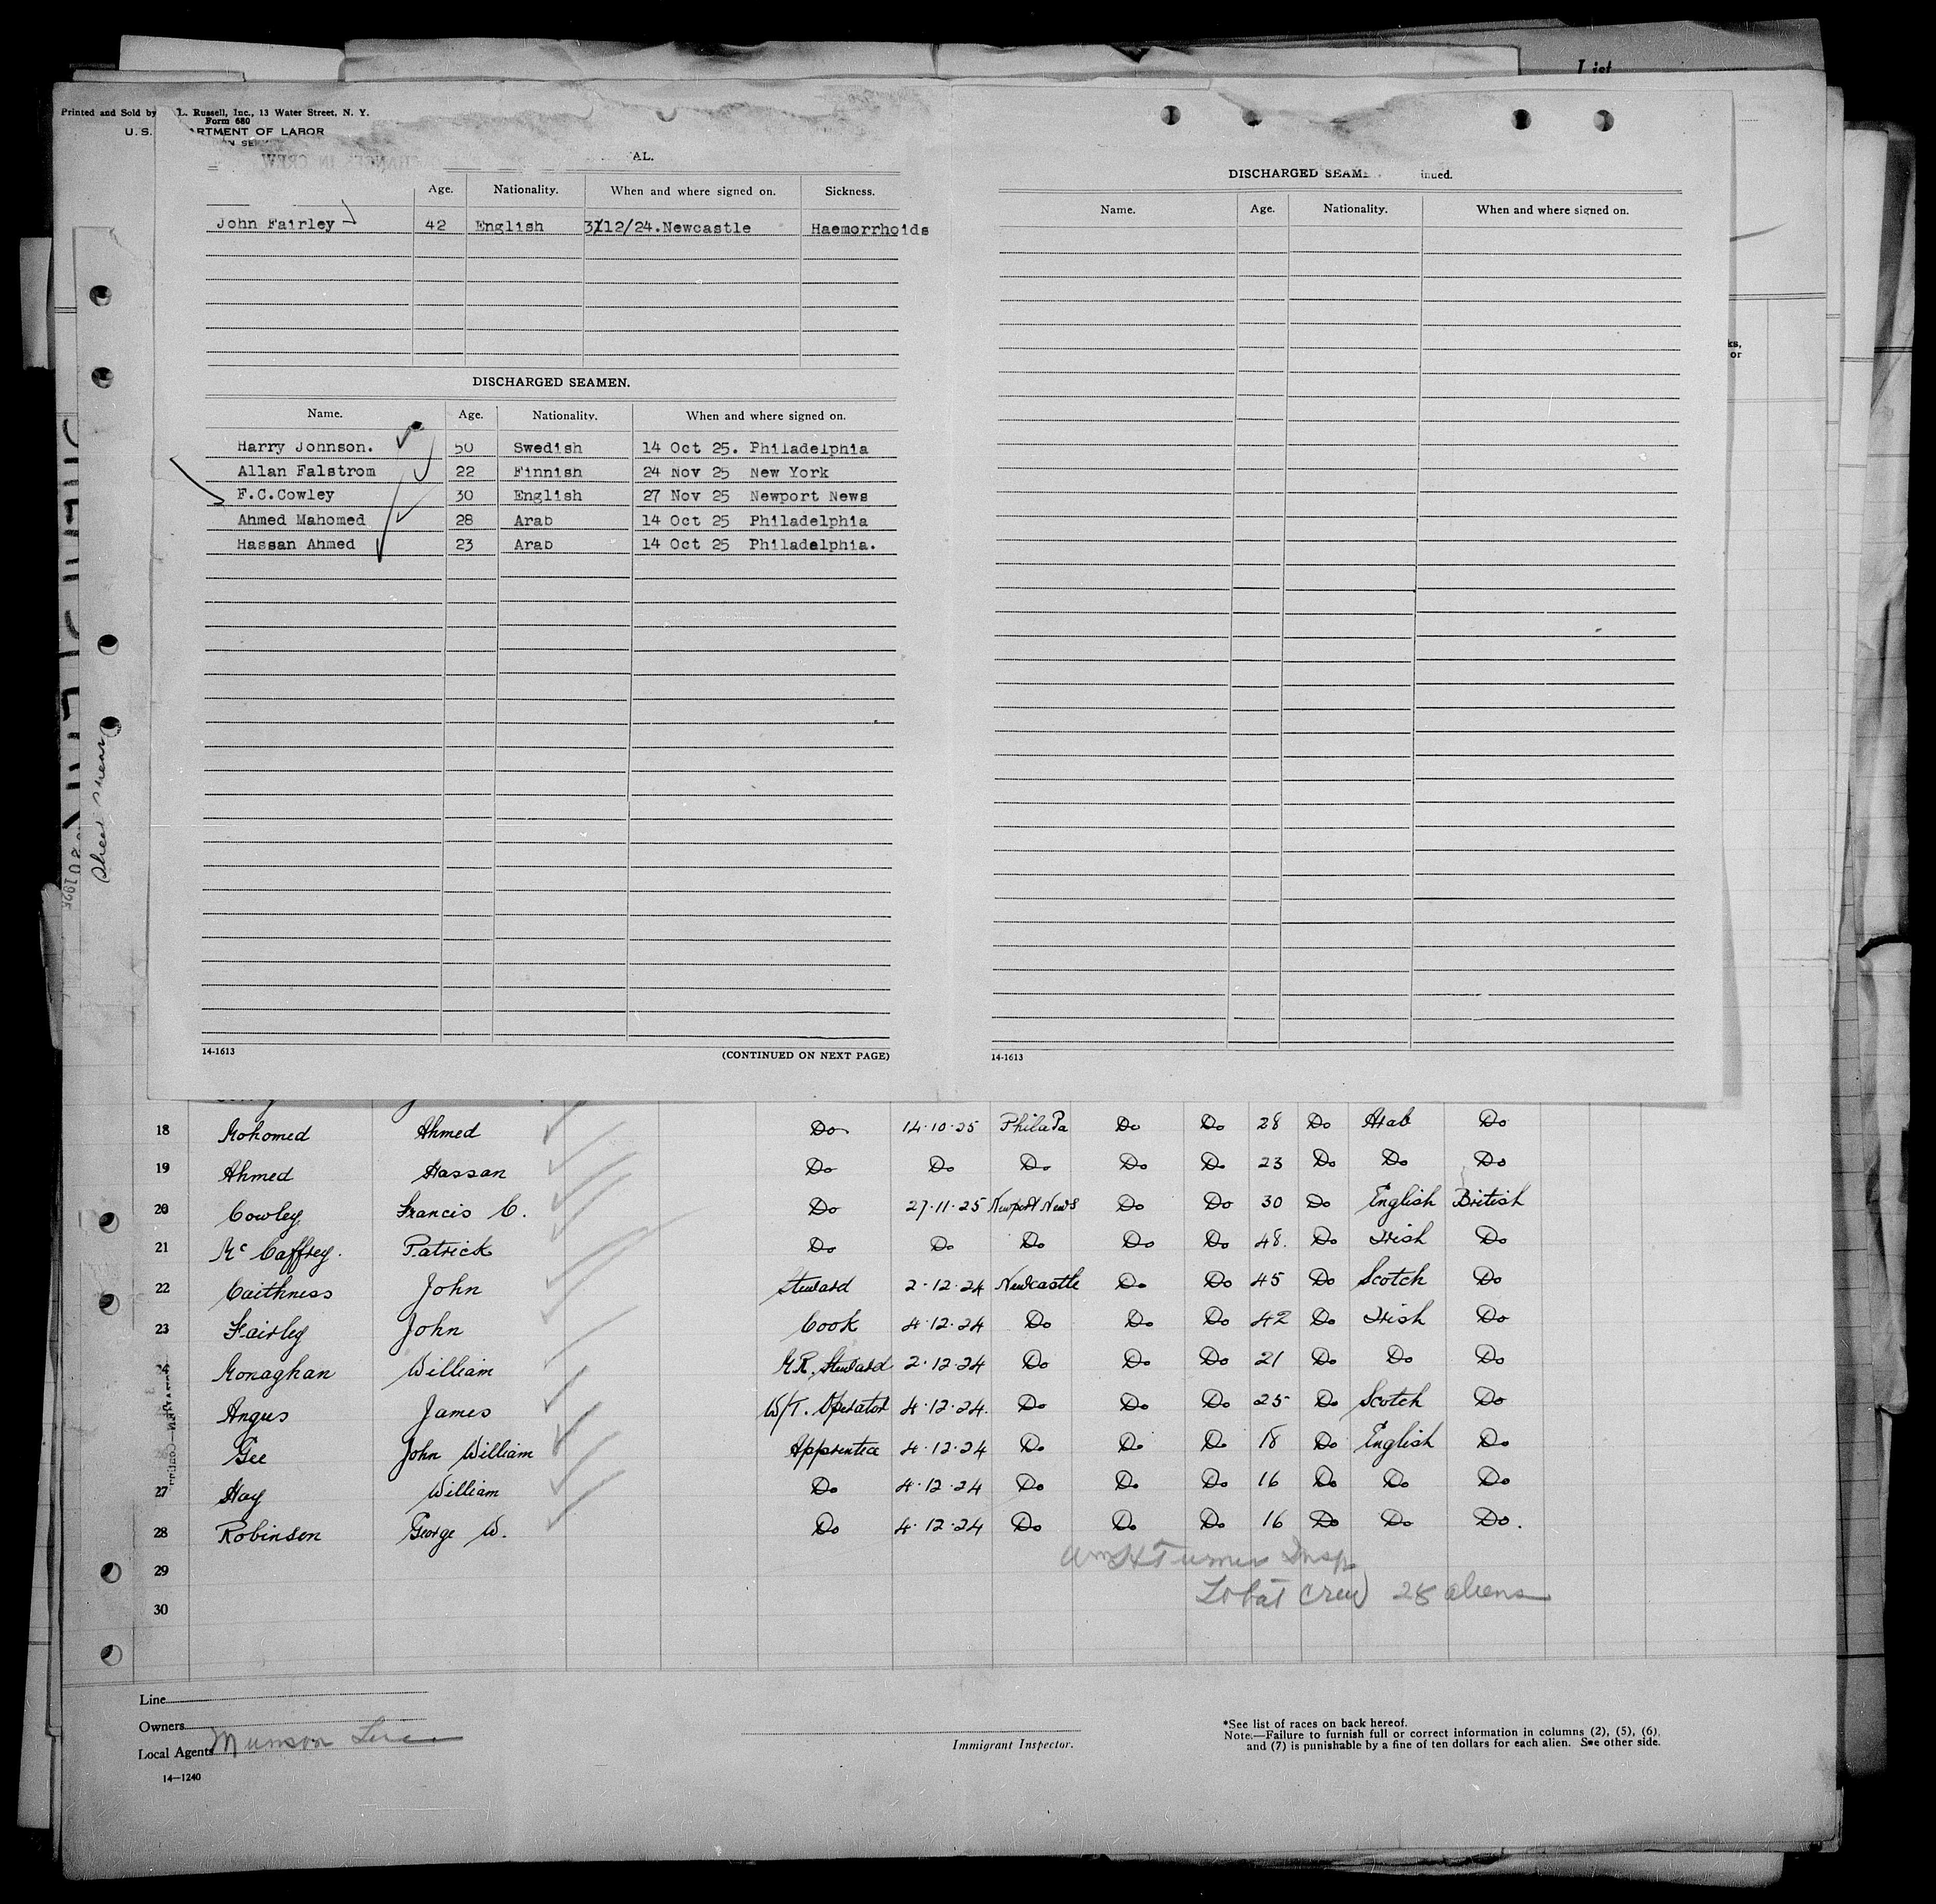 List
Printed and Sold by L. Russell, Inc., 13 Water Street, N. Y.
Form 680
U. S. RTMENT OF LABOR
AL.
Age. Nationality. When and where signed on. Sickness.
John Fairley 42 English 3/12/24.Newcastle Haemorrhoids
DISCHARGED SEAMEN.
Name. Age. Nationality. When and where signed on.
Harry Johnson. 50 Swedish 14 Oct 25. Philadelphia
Allan Falstrom 22 Finnish 24 Nov 25 New York
F.C.Cowley 30 English 27 Nov 25 Newport News
Ahmed Mahomed 28 Arab 14 Oct 25 Philadelphia
Hassan Ahmed 23 Arab 14 Oct 25 Philadelphia.
14-1613 (CONTINUED ON NEXT PAGE)
DISCHARGED SEAM inued.
Name. Age. Nationality. When and where signed on.
14-1613
ks,
or
18 Mohomed Ahmed Do 14.10.25 Phila Pa Do Do 28 Do Arab Do
19 Ahmed Hassan Do Do Do Do Do 23 Do Do Do
20 Cowley Francis C. Do 27.11.25 Newport News Do Do 30 Do English British
21 McCaffrey. Patrick Do Do Do Do Do 48. Do Irish Do
22 Caithness John Steward 2.12.24 Newcastle Do Do 45 Do Scotch Do
23 Fairley John Cook 4.12.24 Do Do Do 42 Do Irish Do
24 Monaghan William M.R. Steward 2.12.24 Do Do Do 21 Do Do Do
Angus James W/T. Operator 4.12.24. Do Do Do 25 Do Scotch Do
26 Gee John William Apprentice 4.12.24 Do Do Do 18 Do English Do
27 Hay William Do 4.12.24 Do Do Do 16 Do Do Do
28 Robinson George W. Do 4.12.24 Do Do Do 16 Do Do Do.
29 Wm H Turner Insp
30 crew 28 aliens
Line
Owners
Local Agents Munson Line
14—1240
Immigrant Inspector.
*See list of races on back hereof.
Note.—Failure to furnish full or correct information in columns (2), (5), (6),
and (7) is punishable by a fine of ten dollars for each alien. See other side.